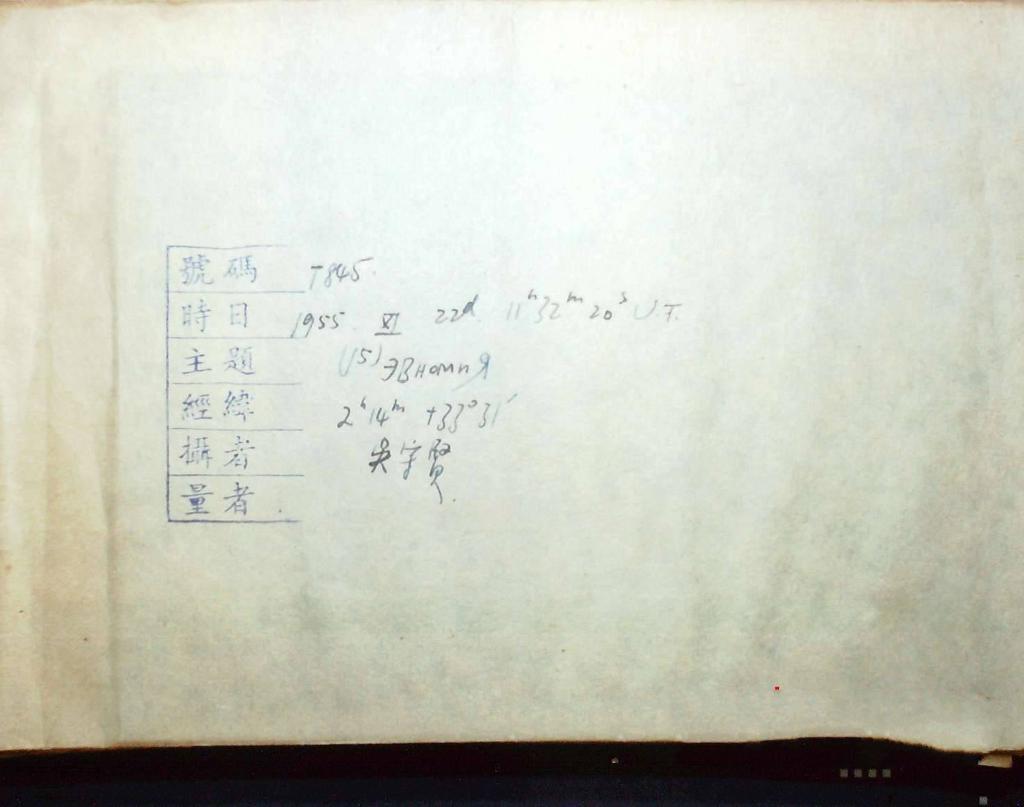 號碼 T845
時日 1955 XI 22d 11h32m20s U.T.
主題 (15) Эвномия
經緯 2h14m +33°31′
攝者 吳宗賢
量者